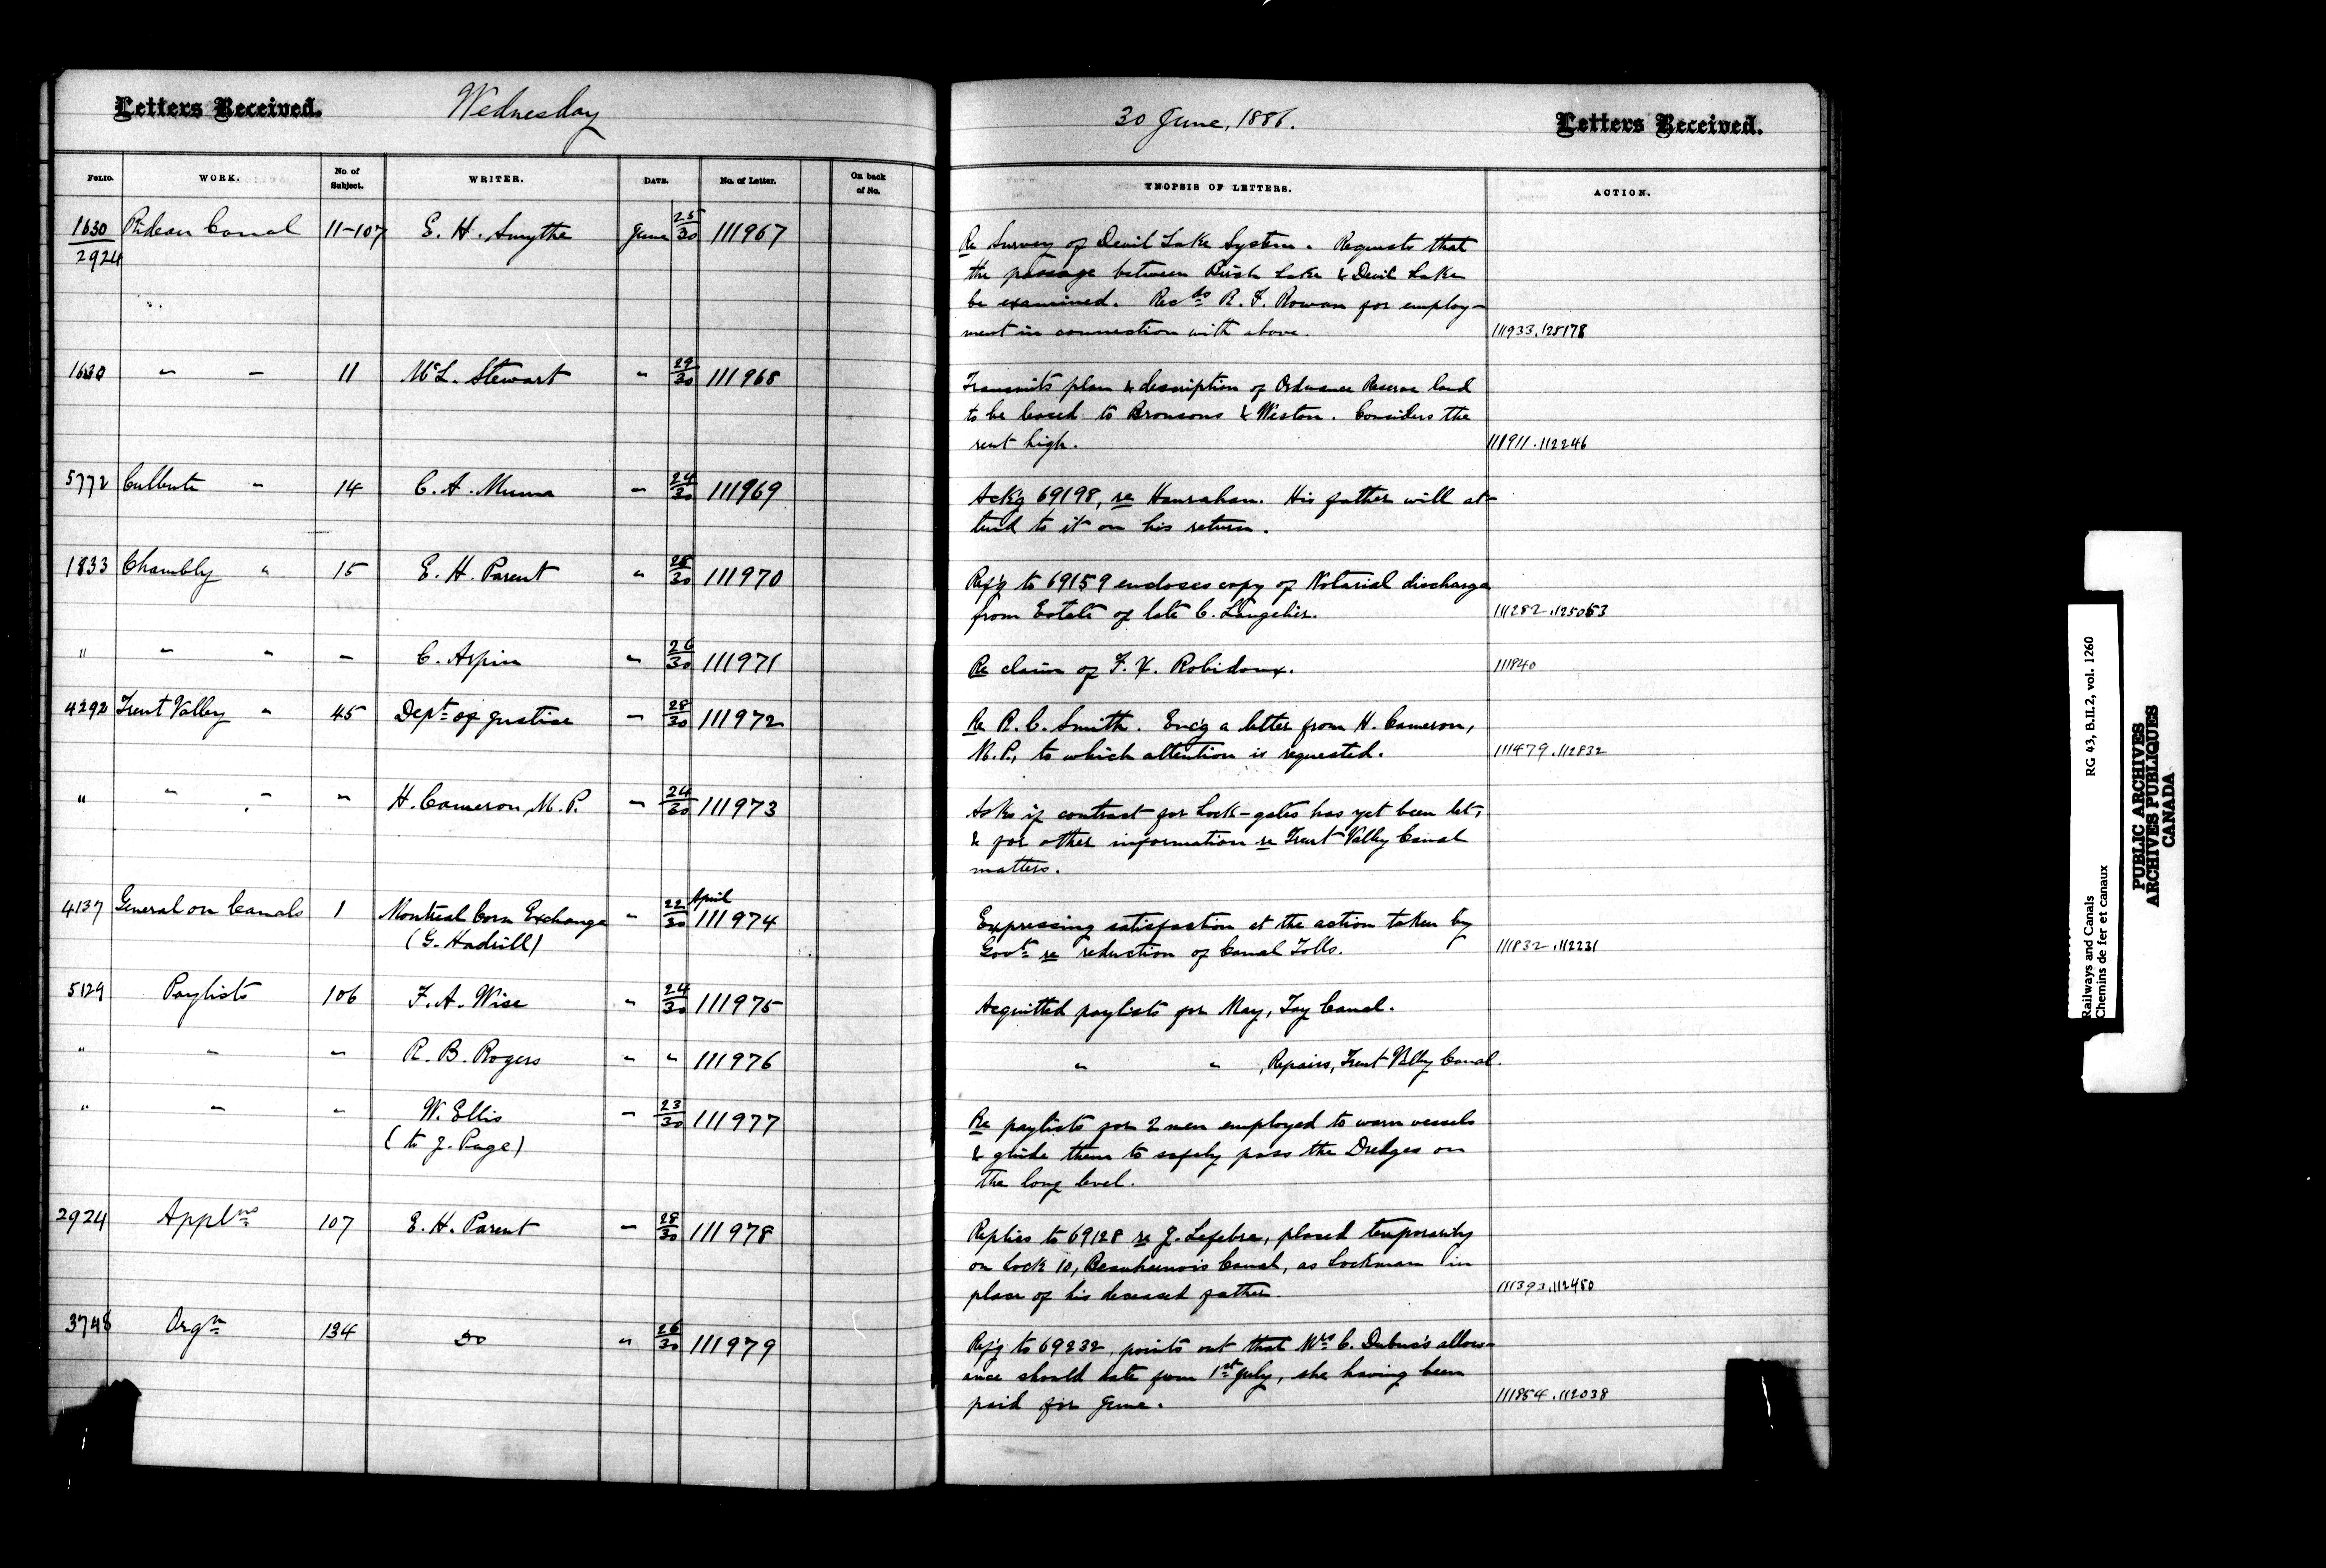 Letters Received.
Wednesday
30 June, 1886.
Letters Received.
FOLIO. WORK. No. of Subject. WRITER. DATE. No. of Letter. On back of No. SYNOPSIS OF LETTERS. ACTION.
1630/2924 Rideau Canal 11-107 E. H. Smythe June 25/30 111967
Re Survey of Devil Lake System. Requests that
the passage between Birch Lake & Devil Lake
be examined. Recds R. F. Rowan for employ-
ment in connection with above. 111933.125178
1630 " " 11 McL. Stewart " 29/30 111968
Transmits plan & description of Ordnance Reserve land
to be leased to Bronsons & Weston. Considers the
rent high. 111911.112246
5772 Culbute " 14 C. A. Munn " 24/30 111969
Ack'g 69198, re Hanrahan. His father will at-
tend to it on his return.
1833 Chambly " 15 E. H. Parent " 28/30 111970
Ref'g to 69159 encloses copy of Notarial discharge
from Estate of late C. Langelier. 111282.125063
" " " " C. Aspin " 26/30 111971
Re claim of F. X. Robidoux. 111840
4292 Trent Valley " 45 Dept. of Justice " 28/30 111972
Re R. C. Smith. Enc'g a letter from H. Cameron,
M.P., to which attention is requested. 111479.112832
" " " " H. Cameron, M.P. " 24/30 111973
Asks if contract for Lock-gates has yet been let,
& for other information re Trent Valley Canal
matters.
4137 General on Canals 1 Montreal Corn Exchange " 22 April/30 111974
(G. Hadrill)
Expressing satisfaction at the action taken by
Govt. re reduction of Canal Tolls. 111832.112231
5129 Paylists 106 F. A. Wise " 24/30 111975
Acquitted paylists for May, Tay Canal.
" " " R. B. Rogers " " 111976
" " , Repairs, Trent Valley Canal.
" " " W. Ellis " 23/30 111977
(to J. Page)
Re paylists for 2 men employed to warn vessels
& guide them to safely pass the Dredges on
the long level.
2924 Applns 107 E. H. Parent " 28/30 111978
Replies to 69128 re J. Lefebre, placed temporarily
on Lock 10, Beauharnois Canal, as Lockman in
place of his deceased father. 111393.112480
3748 Orgn 134 do " 26/30 111979
Ref'g to 69232, points out that Mrs C. Dubuc's allow-
ance should date from 1st July, she having been
paid for June. 111854.112038
Railways and Canals RG 43, B.II.2, vol. 1260
Chemins de fer et canaux
PUBLIC ARCHIVES
ARCHIVES PUBLIQUES
CANADA